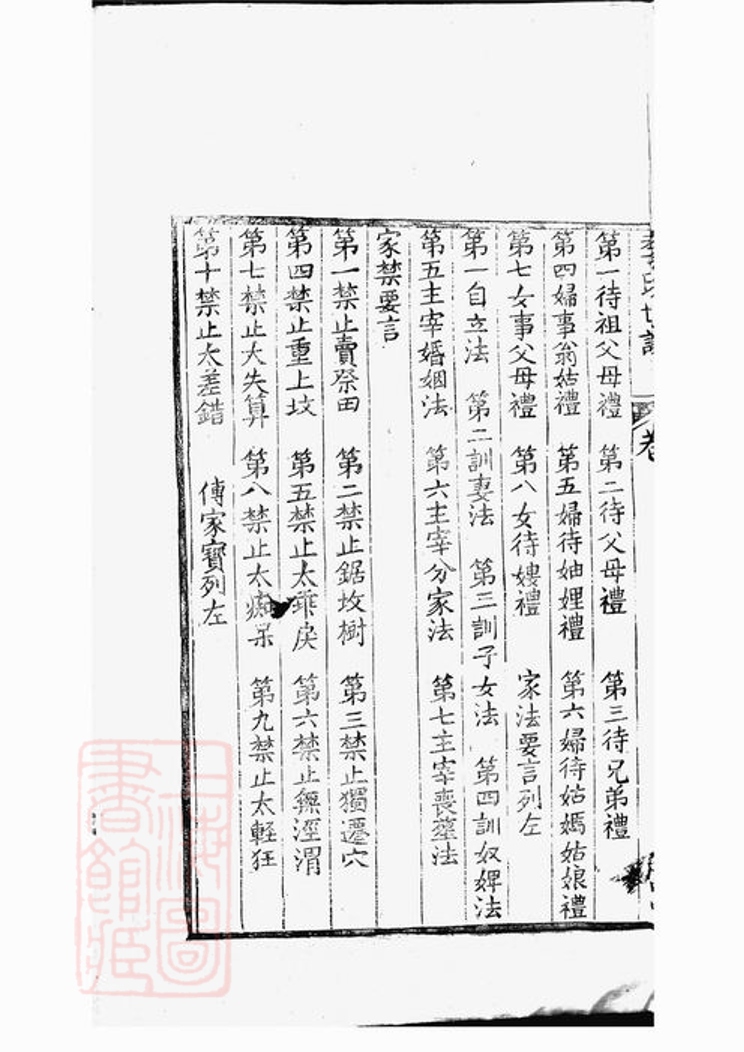 第一待祖父母禮　第二待父母禮　第三待兄弟禮
第四婦事翁姑禮　第五婦待妯娌禮　第六婦待姑嫣姑娘禮
第七女事父母禮　第八女待嫂禮　家法要言列左
第一自立法　第二訓妻法　第三訓子女法　第四訓奴婢法
第五主宰婚姻法　第六主宰分家法　第七主宰喪葬法
家禁要言
第一禁止賣祭田　第二禁止鋸坟樹　第三禁止獨遷穴
第四禁止重上坟　第五禁止太乖戾　第六禁止無涇渭
第七禁止大失算　第八禁止太痴呆　第九禁止太輕狂
第十禁止太差錯　傳家寶列左
上海圖書館藏